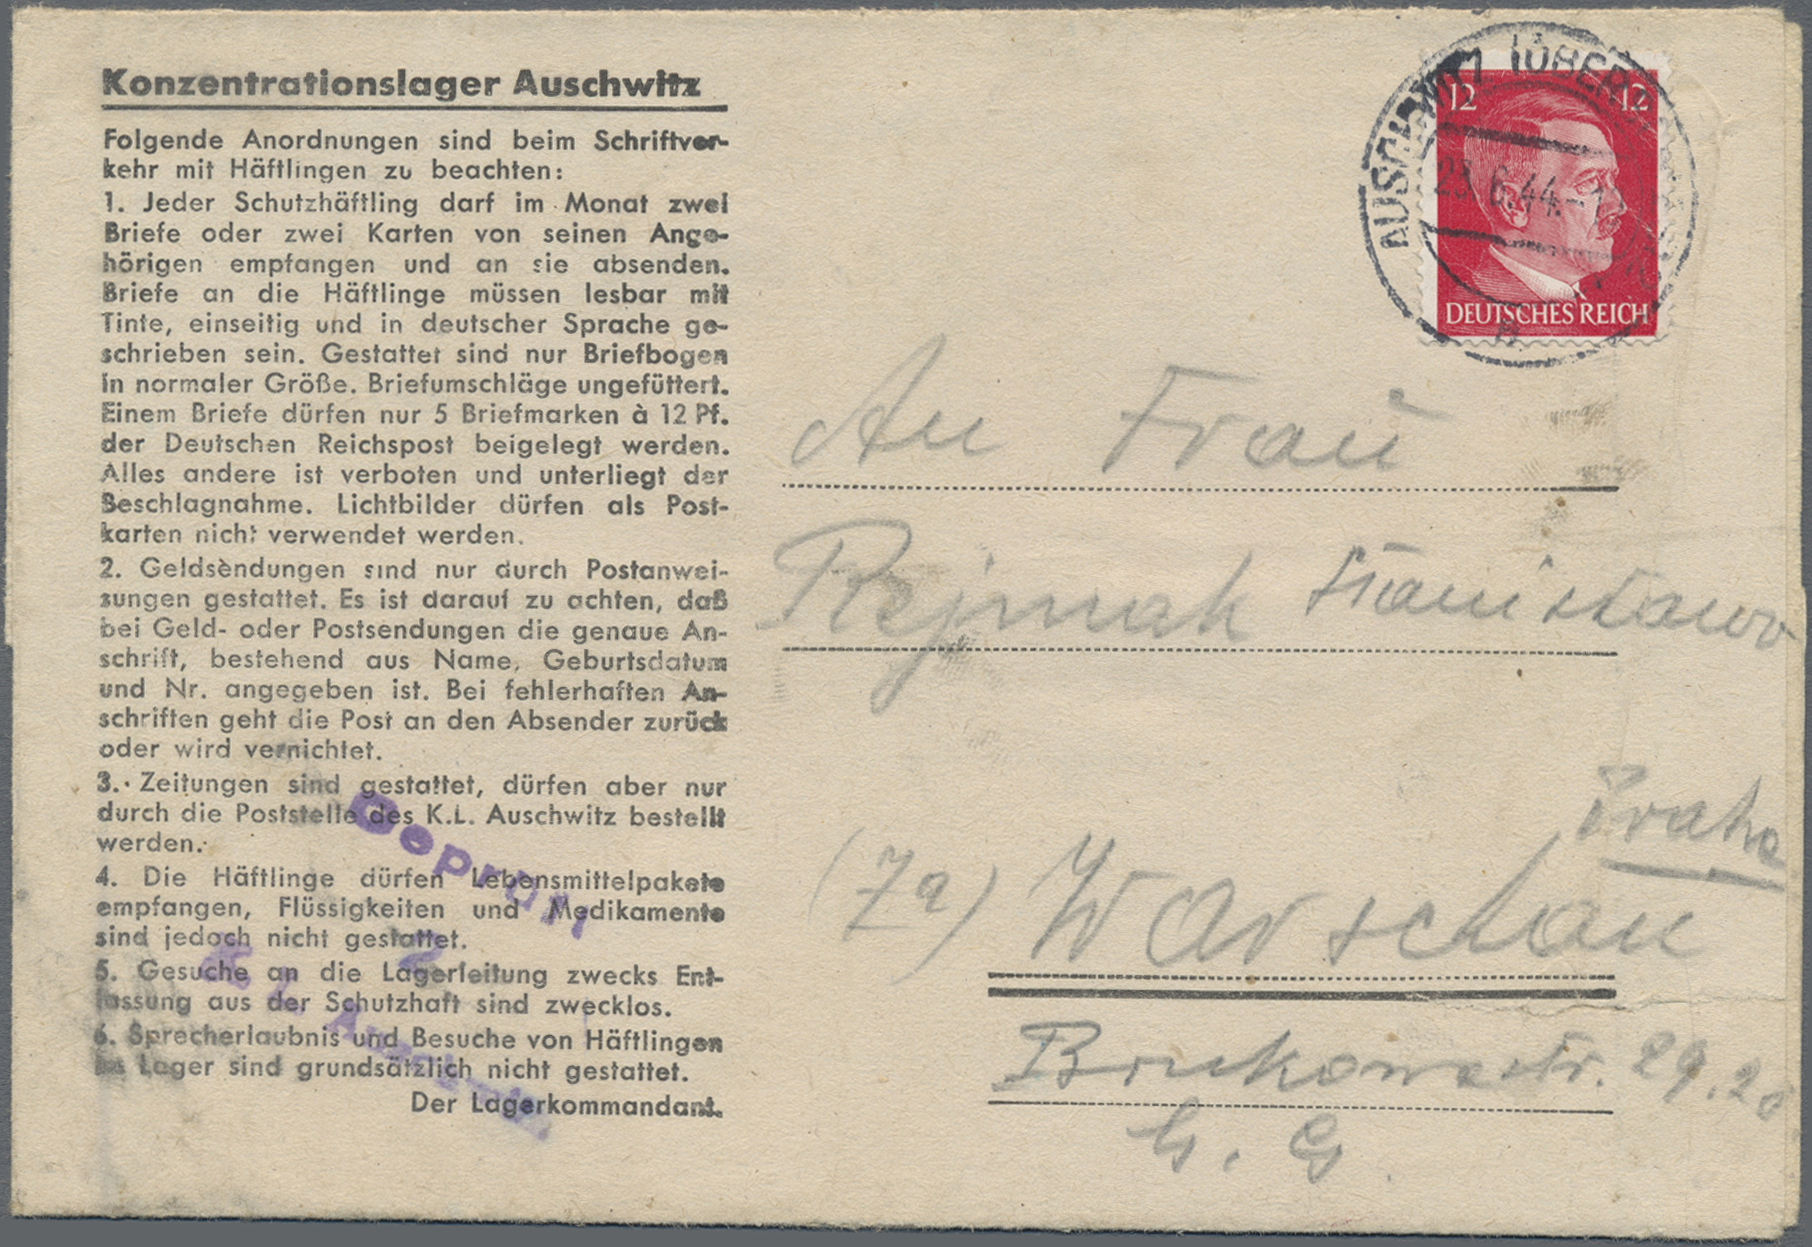 Konzentrationslager Auschwitz
Folgende Anordnungen sind beim Schriftver-
kehr mit Häftlingen zu beachten:
1. Jeder Schutzhäftling darf im Monat zwei
Briefe oder zwei Karten von seinen Ange-
hörigen empfangen und an sie absenden.
Briefe an die Häftlinge müssen lesbar mit
Tinte, einseitig und in deutscher Sprache ge-
schrieben sein. Gestattet sind nur Briefbogen
in normaler Größe. Briefumschläge ungefüttert.
Einem Briefe dürfen nur 5 Briefmarken à 12 Pf.
der Deutschen Reichspost beigelegt werden.
Alles andere ist verboten und unterliegt der
Beschlagnahme. Lichtbilder dürfen als Post-
karten nicht verwendet werden.
2. Geldsendungen sind nur durch Postanwei-
sungen gestattet. Es ist darauf zu achten, daß
bei Geld- oder Postsendungen die genaue An-
schrift, bestehend aus Name, Geburtsdatum
und Nr. angegeben ist. Bei fehlerhaften An-
schriften geht die Post an den Absender zurück
oder wird vernichtet.
3. Zeitungen sind gestattet, dürfen aber nur
durch die Poststelle des K.L. Auschwitz bestellt
werden.
4. Die Häftlinge dürfen Lebensmittelpakete
empfangen, Flüssigkeiten und Medikamente
sind jedoch nicht gestattet.
5. Gesuche an die Lagerleitung zwecks Ent-
lassung aus der Schutzhaft sind zwecklos.
6. Sprecherlaubnis und Besuche von Häftlingen
im Lager sind grundsätzlich nicht gestattet.
Der Lagerkommandant.
Geprüft
2
K L Auschwitz
AUSCHWITZ (OBERSCHLES)
23.6.44.-1
12 12
DEUTSCHES REICH
An Frau
Rejmak
Praha
(7a) Warschau
29.20
G. G